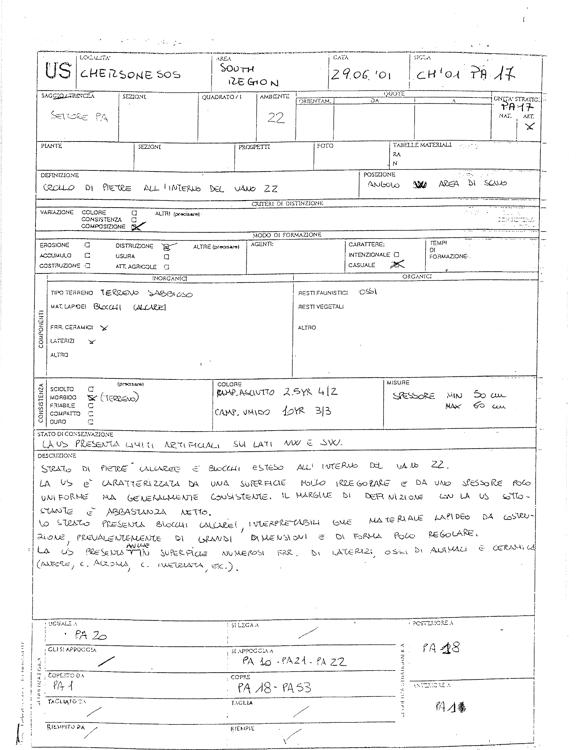 US
LOCALITA'
CHERSONESOS
AREA
SOUTH
REGION
DATA
29.06.'01
SIGLA
CH'01 PA 17
SAGGIO/TRINCEA
SETTORE PA
SEZIONI
QUADRATO/I
AMBIENTE
22
QUOTE
ORIENTAM.
DA
A
UNITA' STRATIG.
PA 17
NAT. ART.
X
PIANTE
SEZIONI
PROSPETTI
FOTO
TABELLE MATERIALI
RA
N
DEFINIZIONE
CROLLO DI PIETRE ALL'INTERNO DEL VANO 22
POSIZIONE
ANGOLO AREA DI SCAVO
CRITERI DI DISTINZIONE
VARIAZIONE COLORE ALTRI (precisare)
CONSISTENZA
COMPOSIZIONE X
MODO DI FORMAZIONE
EROSIONE DISTRUZIONE X ALTRE (precisare)
ACCUMULO USURA
COSTRUZIONE ATT. AGRICOLE
AGENTI:
CARATTERE:
INTENZIONALE
CASUALE X
TEMPI
DI
FORMAZIONE
COMPONENTI
INORGANICI
ORGANICI
TIPO TERRENO TERRENO SABBIOSO
MAT. LAPIDEI BLOCCHI CALCAREI
FRR. CERAMICI X
LATERIZI X
ALTRO
RESTI FAUNISTICI OSSI
RESTI VEGETALI
ALTRO
CONSISTENZA
SCIOLTO (precisare)
MORBIDO X (TERRENO)
FRIABILE
COMPATTO
DURO
COLORE
CAMP. ASCIUTTO 2.5YR 4/2
CAMP. UMIDO 10YR 3/3
MISURE
SPESSORE MIN 50 cm
MAX 60 cm
STATO DI CONSERVAZIONE
LA US PRESENTA LIMITI ARTIFICIALI SUI LATI NW E SW.
DESCRIZIONE
STRATO DI PIETRE CALCAREE E BLOCCHI ESTESO ALL'INTERNO DEL VANO 22.
LA US E' CARATTERIZZATA DA UNA SUPERFICIE MOLTO IRREGOLARE E DA UNO SPESSORE POCO
UNIFORME MA GENERALMENTE CONSISTENTE. IL MARGINE DI DEFINIZIONE CON LA US SOTTO-
STANTE E' ABBASTANZA NETTO.
LO STRATO PRESENTA BLOCCHI CALCAREI, INTERPRETABILI COME MATERIALE LAPIDEO DA COSTRU-
ZIONE, PREVALENTEMENTE DI GRANDI DIMENSIONI E DI FORMA POCO REGOLARE.
LA US PRESENTA ANCHE IN SUPERFICIE NUMEROSI FRR. DI LATERIZI, OSSI DI ANIMALI E CERAMICA
(ANFORE, C. ACROMA, C. INVETRIATA, ETC.).
UGUALE A
PA 20
SI LEGA A
GLI SI APPOGGIA
SI APPOGGIA A
PA 10 - PA21 - PA 22
COPERTO DA
PA 1
COPRE
PA 18 - PA53
TAGLIATO DA
TAGLIA
RIEMPITO DA
RIEMPIE
POSTERIORE A
PA 18
ANTERIORE A
PA 1